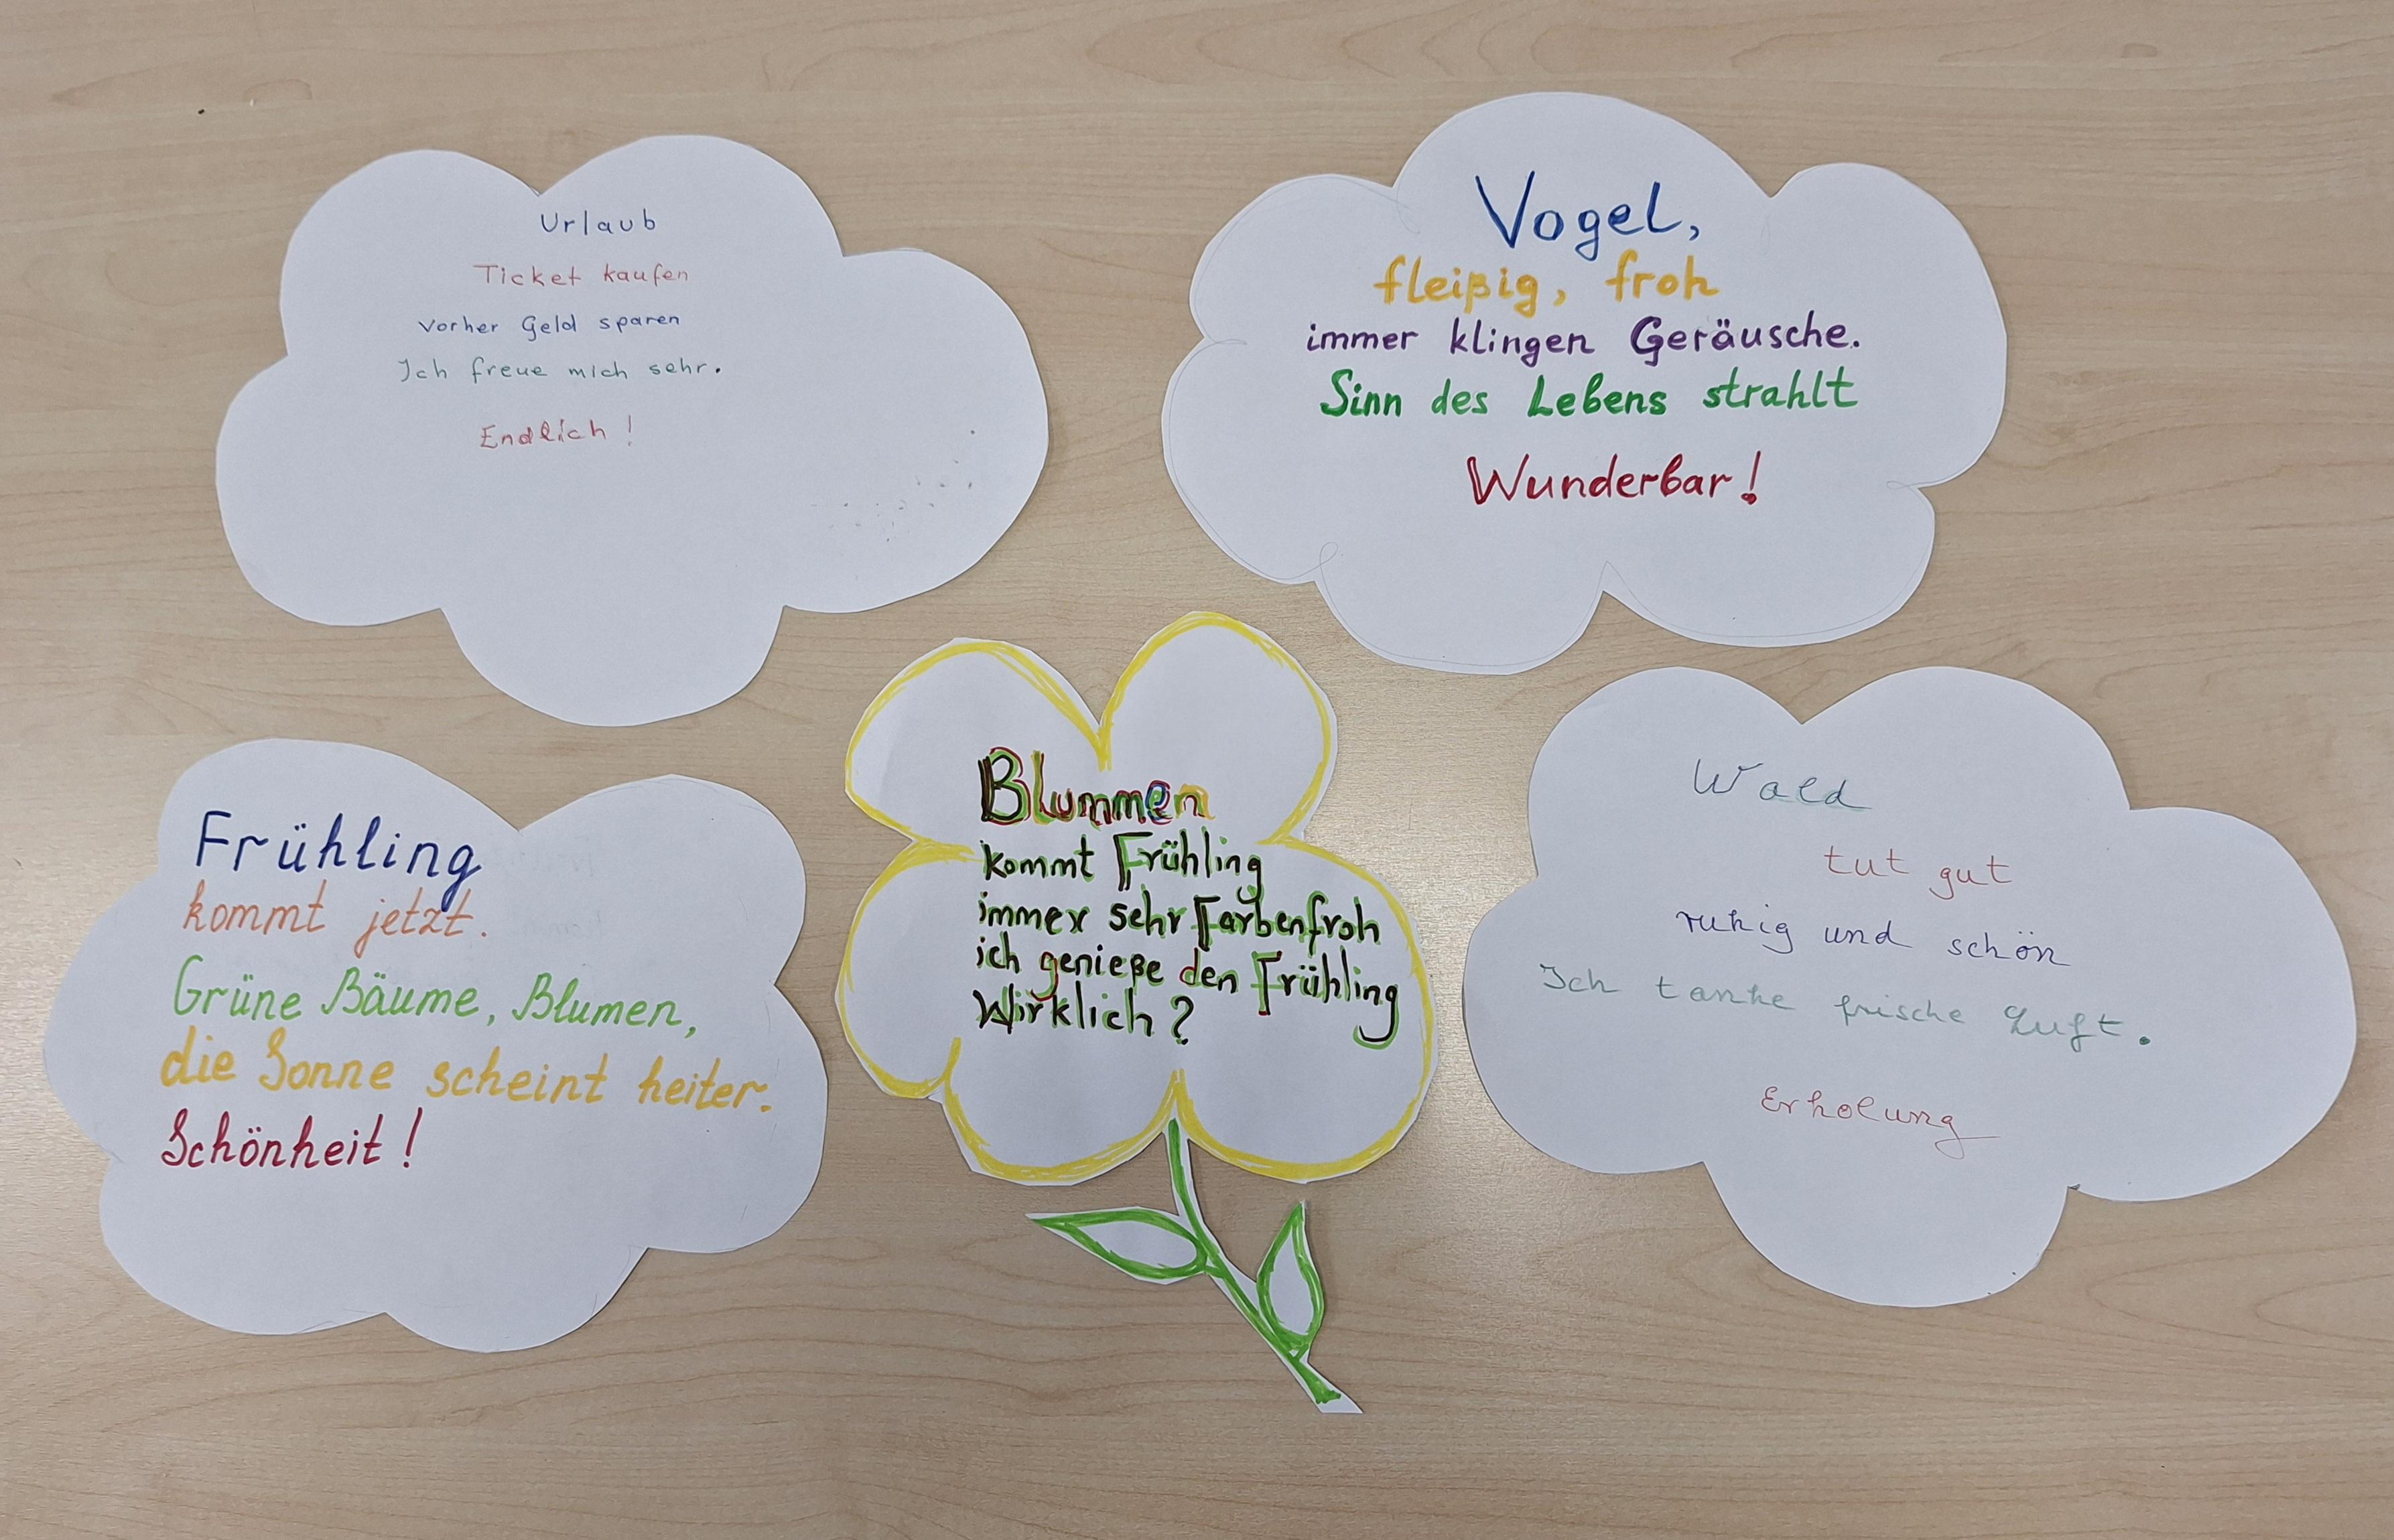 Urlaub
Ticket kaufen
vorher Geld sparen
Ich freue mich sehr.
Endlich!
Vogel,
fleißig, froh
immer klingen Geräusche.
Sinn des Lebens strahlt
Wunderbar!
Frühling
kommt jetzt.
Grüne Bäume, Blumen,
die Sonne scheint heiter.
Schönheit!
Blummen
kommt Frühling
immer sehr Farbenfroh
ich genieße den Frühling
Wirklich?
Wald
tut gut
ruhig und schön
Ich tanke frische Luft.
Erholung